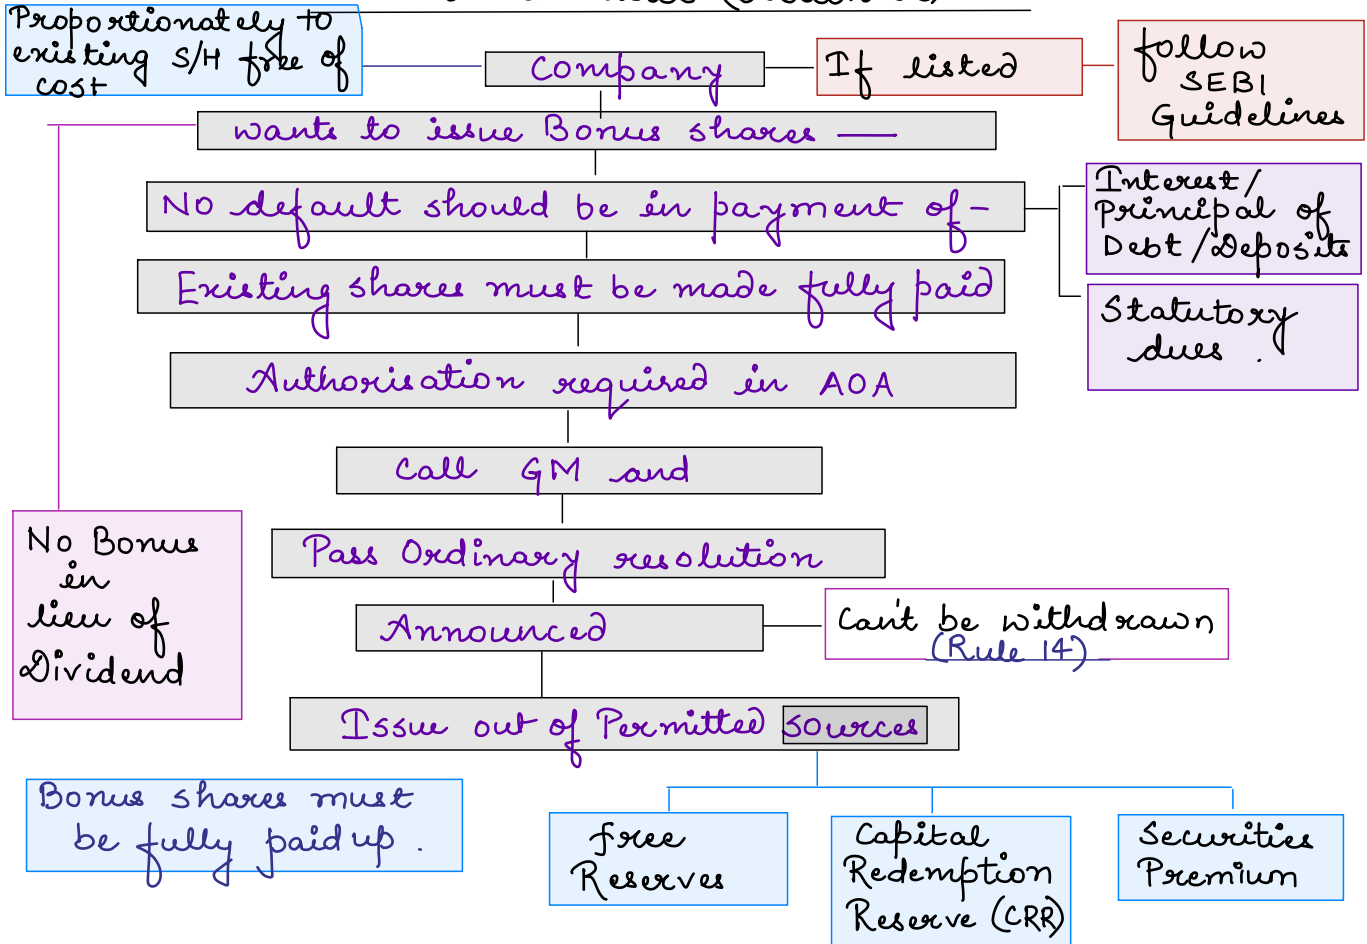 Proportionately to
existing S/H free of
cost
Company
If listed
follow
SEBI
Guidelines
wants to issue Bonus shares —
No default should be in payment of -
Interest/
Principal of
Debt/Deposits
Existing shares must be made fully paid
Statutory
dues.
Authorisation required in AOA
Call GM and
No Bonus
in
lieu of
Dividend
Pass Ordinary resolution
Announced
Can't be withdrawn
(Rule 14)
Issue out of Permitted sources
Bonus shares must
be fully paid up.
free
Reserves
Capital
Redemption
Reserve (CRR)
Securities
Premium